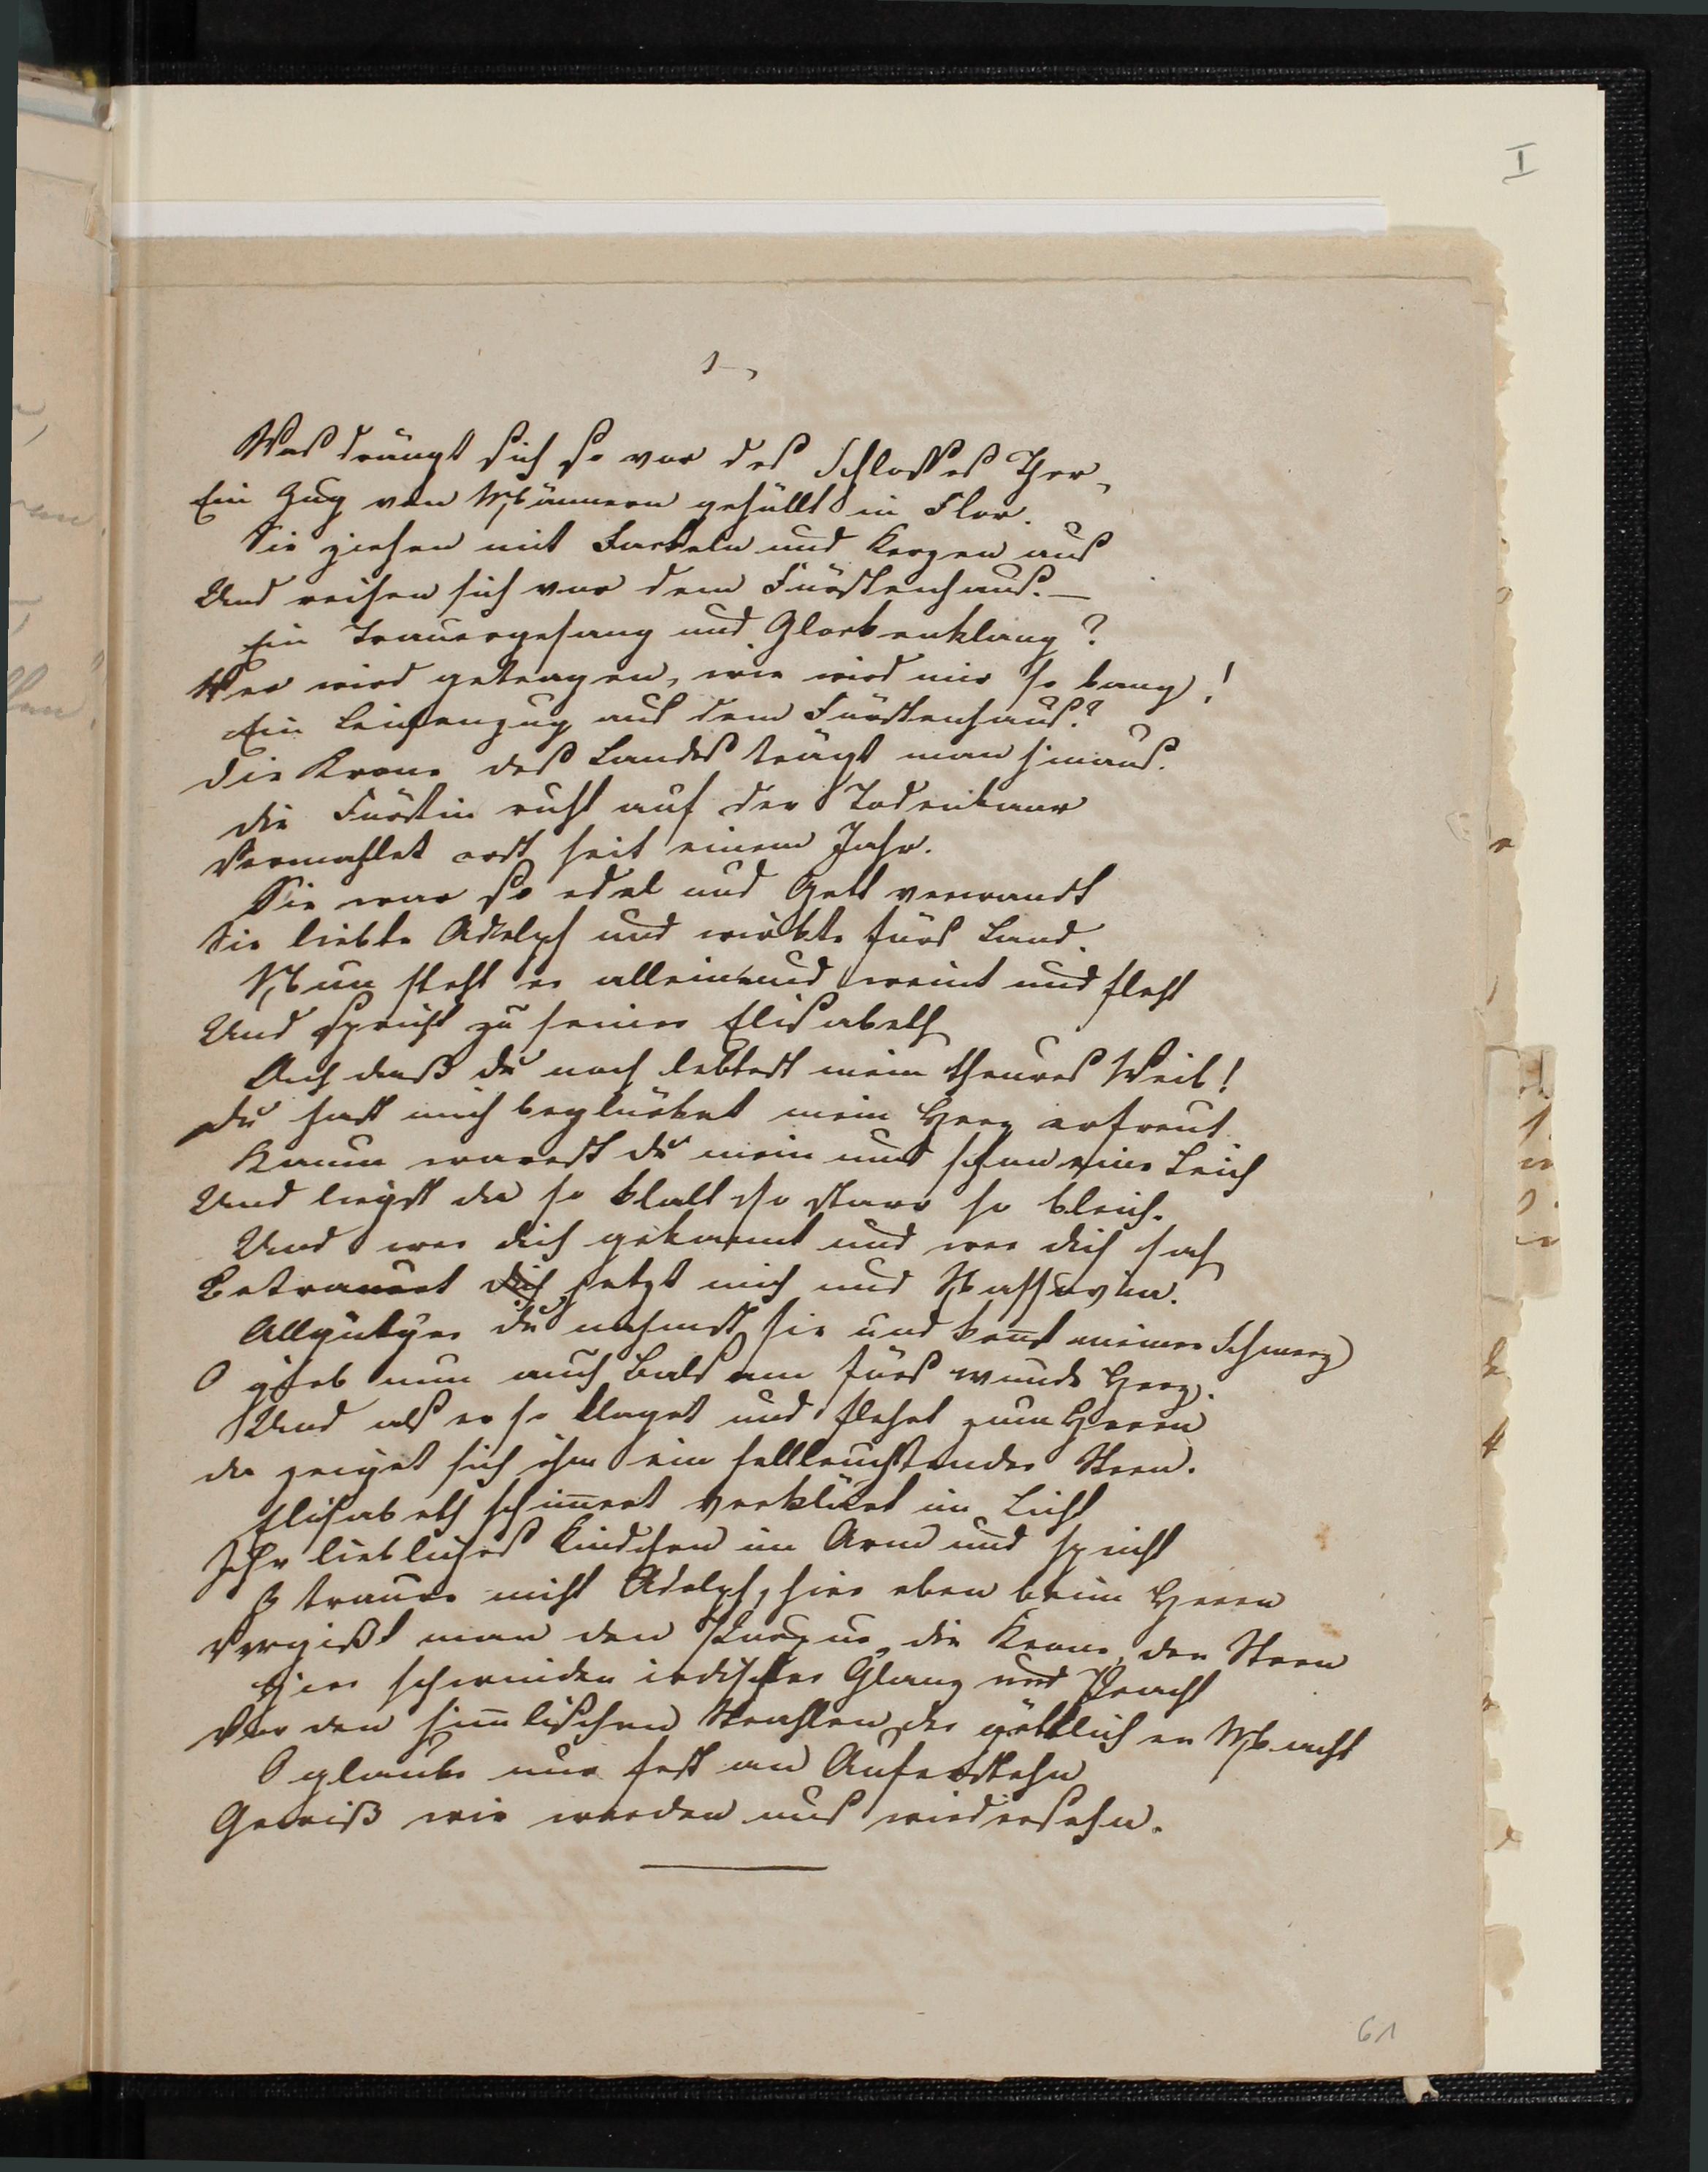 I
1.,
Was drängt sich so vor des Schlosses Thor,
Ein Zug von Männern gehüllt in Flor.
Sie ziehen mit Fackeln und Kerzen aus
Und reihen sich vor dem Fürstenhaus. —
Ein Trauergesang und Glockenklang?
Wer wird getragen, wie wird mir so bang!
Ein Leichenzug aus dem Fürstenhaus?
Die Krone des Landes trägt man hinaus.
Die Fürstin ruht auf der Todenbaar
Vermahlet erst seit einem Jahr.
Sie war so edel und Gott verwandt
Sie liebte Adolph und wirkte fürs Land.
Nun steht er allein und weint und fleht
Und spricht zu seiner Elisabeth
Ach daß du noch lebtest mein theures Weib!
Du hast mich beglücket mein Herz erfreut
Kaum warest du mein und schon eine Leich
Und liegst da so kalt so starr so bleich.
Und wer dich gekannt und wer dich sah
Betrauert dich jetzt mich und Nassovia.
Allgütiger du nahmst sie und kennst meinen Schmerz
O gieb nun auch Balsam fürs wunde Herz.
Und als er so klaget und flehet zum Herrn
Da zeiget sich ihm ein hellleuchtender Stern.
Elisabeth schimert verklärt im Licht
Ihr liebliches Kindchen im Arm und spricht
O traure nicht Adolph, hier oben beim Herrn
Vergißt man den Purpur, die Krone, den Stern
Hier schwinden irdischer Glanz und Pracht
Vor den himlischen Strahlen der göttlichen Macht
O glaube nur fest an Auferstehn
Gewiß wir werden uns wiedersehn.
61